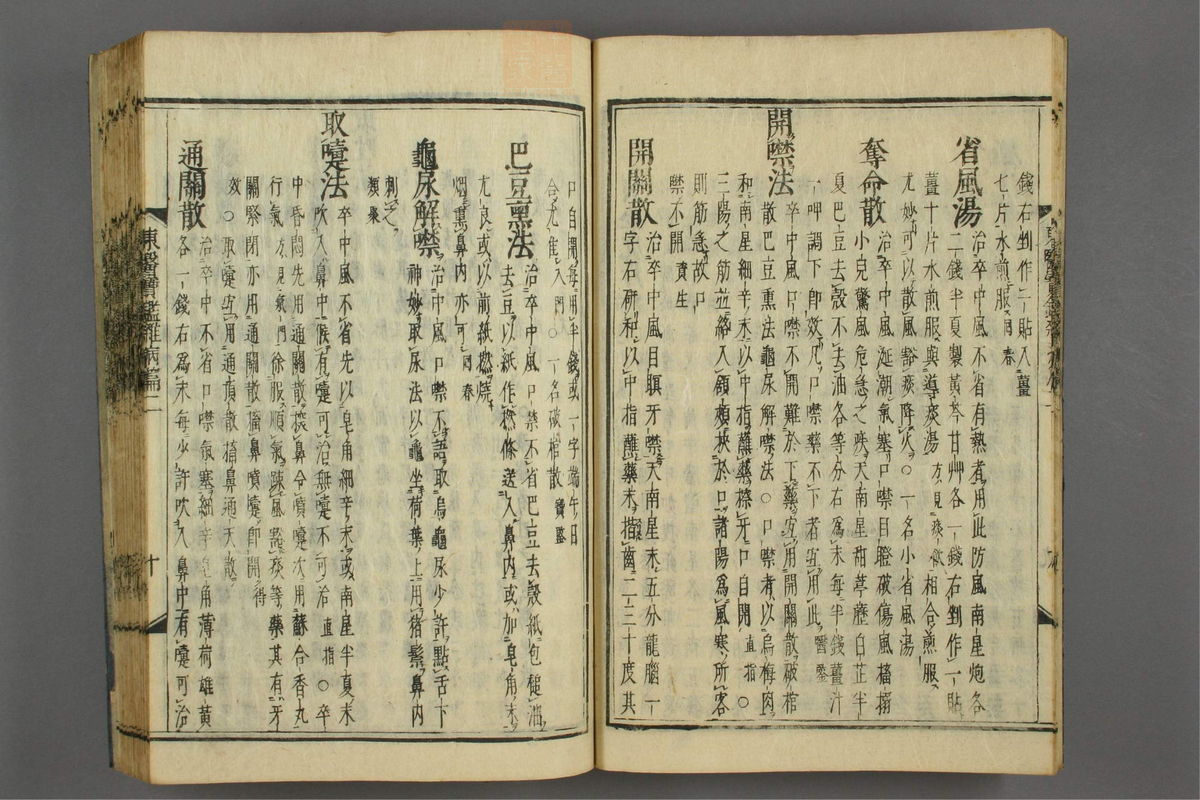 錢右剉作一貼入薑
七片水煎服回春
省風湯 治卒中風不省有熱者用此防風南星炮各
二錢半夏製黃芩甘艸各一錢右剉作一貼
薑十片水煎服與導痰湯方見痰飮相合煎服
尤妙可以散風豁痰降火○一名小省風湯
奪命散 治卒中風涎潮氣塞口噤目瞪破傷風搐搦
小兒驚風危急之疾天南星甜葶藶白芷半
夏巴豆去殼不去油各等分右爲末每半錢薑汁
一呷調下卽效凡口噤藥不下者宜用此醫鑒
開噤法 卒中風口噤不開難於下藥宜用開關散破棺
散巴豆熏法龜尿解噤法○口噤者以烏梅肉
和南星細辛末以中指蘸藥擦牙口自開直指○
三陽之筋並絡入頷頰挾於口諸陽爲風寒所客
則筋急故口
噤不開資生
開關散 治卒中風目瞑牙噤天南星末五分龍腦一
字右硏和以中指蘸藥末揩齒二三十度其
口自開每用半錢或一字端午日
合尤佳入門 ○一名破棺散寶鑒
巴豆熏法 治卒中風口噤不省巴豆去殼紙包槌油
去豆以紙作撚條送入鼻內或加皂角末
尤良或以前紙撚燒
烟熏鼻內亦可回春
龜尿解噤 治中風口噤不語取烏龜尿少許點舌下
神妙取尿法以龜坐荷葉上用猪鬃鼻內
刺之
類聚
取嚔法 卒中風不省先以皂角細辛末或南星半夏末
吹入鼻中候有嚔可治無嚔不可治直指○卒
中昏悶先用通關散搐鼻令噴嚔次用蘇合香丸
行氣方見氣門徐服順氣踈風豁痰等藥其有牙
關緊閉亦用通關散搐鼻噴嚔卽開得
效○取嚔宜用通頂散搐鼻通天散
通關散 治卒中不省口噤氣塞細辛皂角薄荷雄黃
各一錢右爲末每少許吹入鼻中有嚔可治
東醫寶鑑雜病篇二
十